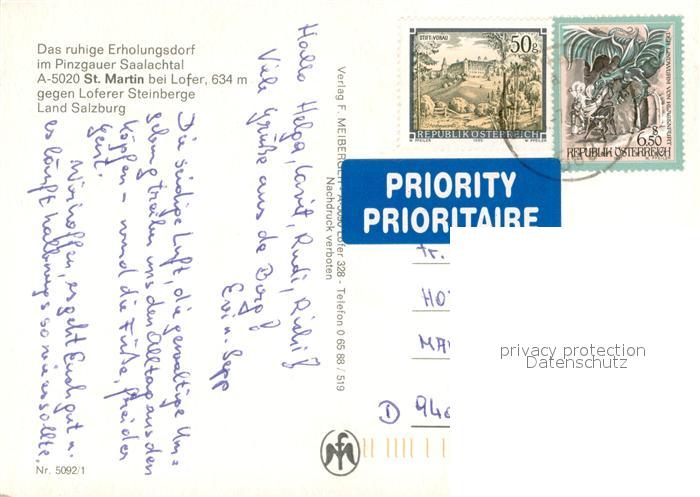 Das ruhige Erholungsdorf
im Pinzgauer Saalachtal
A-5020 St. Martin bei Lofer, 634 m
gegen Loferer Steinberge
Land Salzburg
Hallo Helga, Rudi,
Viele Grüße aus de Berg!
Evi u. Sepp
Die würzige Luft, die gewaltige Um=
gebung treiben uns den Alltag aus den
Köpfen – wund die Füße, frei der
Geist.
Wir hoffen, es geht Euch gut u.
es läuft halbwegs so wie es sollte.
Nr. 5092/1
Verlag F. MEIBERGER · A-5090 Lofer 328 - Telefon 0 65 88 / 519
Nachdruck verboten
STIFT VORAU
50g
REPUBLIK ÖSTERREICH
W. PFEILER
DER LINDWURM VON KLAGENFURT
S 6.50
REPUBLIK ÖSTERREICH
PRIORITY
PRIORITAIRE
Fr.
HO
MA
D 940
privacy protection
Datenschutz